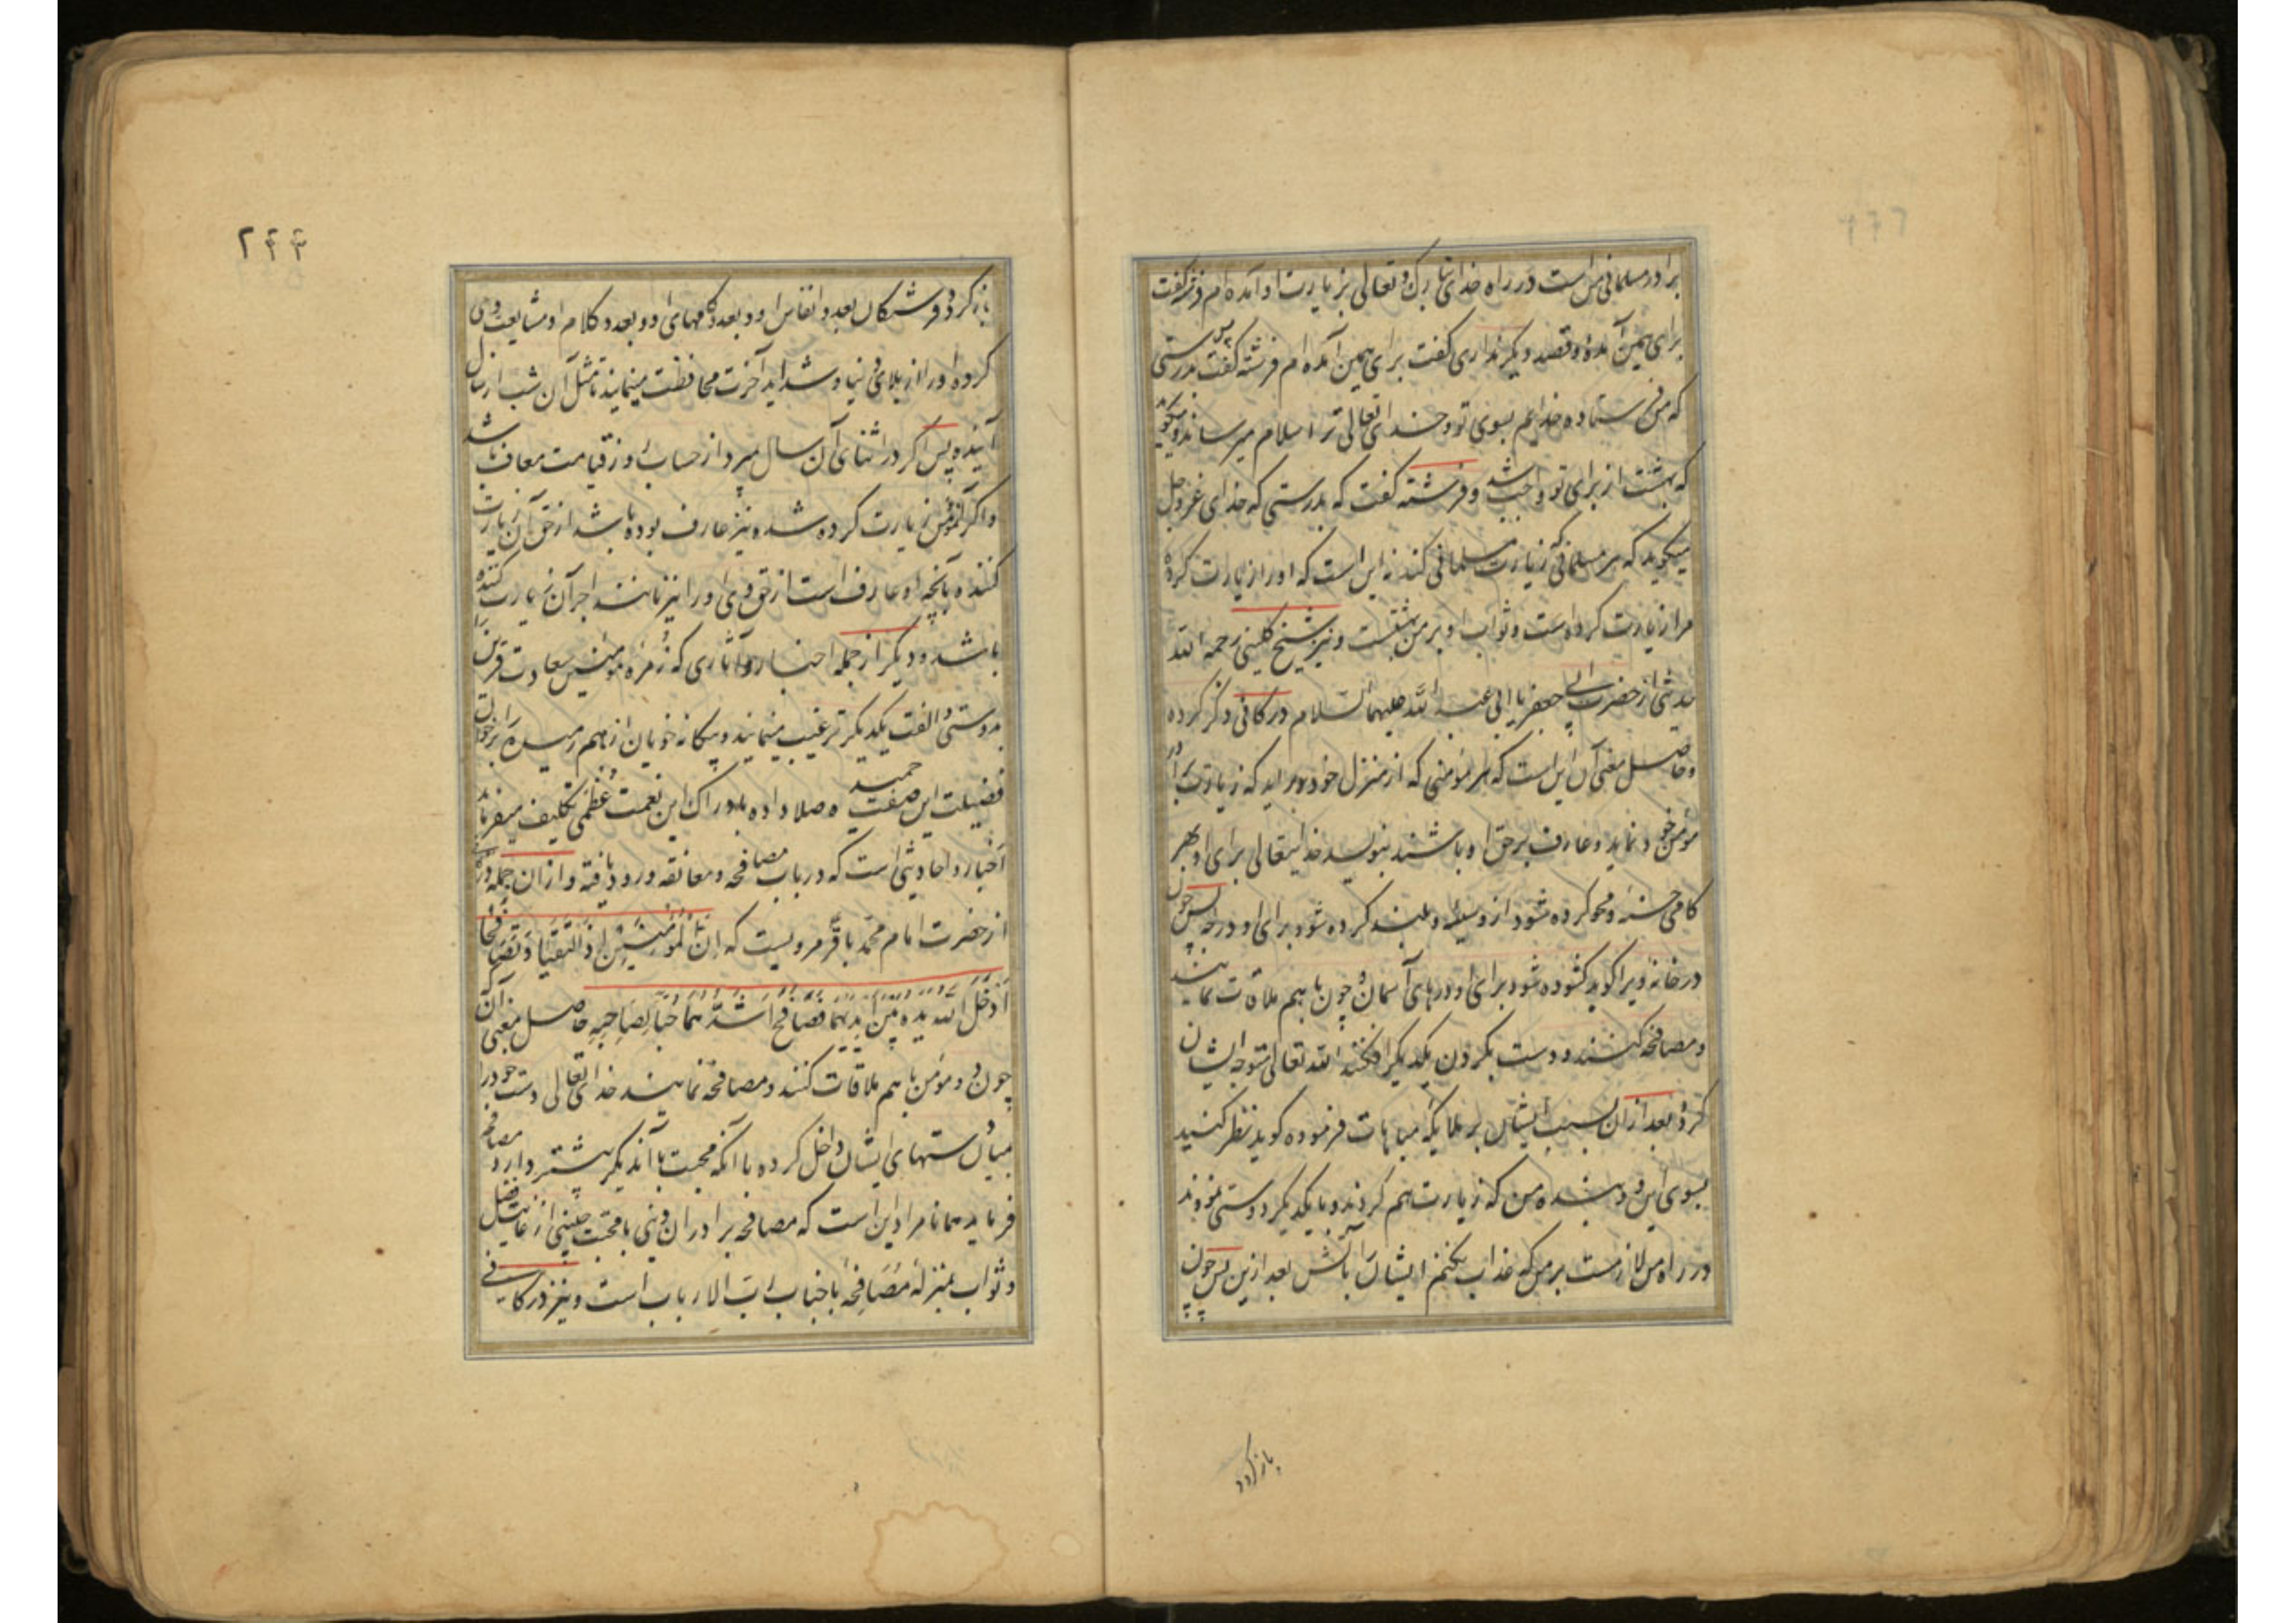 برادر مسلمانی من است در راه خدای تبارک و تعالی بزیارت او آمده‌ام فرشته گفت
برای همین آمدهٔ و قصد دیگر نداری گفت برای همین آمده‌ام فرشته گفت پس بدرستی
که من فرستاده خدایم بسوی تو و خدای تعالی ترا سلام میرساند و میگوید
که بهشت از برای تو واجب شد و فرشته گفت که بدرستی که خدای عز و جل
میگوید که هر مسلمانی که زیارت مسلمانی کند نه این است که او را زیارت کرده
مرا زیارت کرده است و ثواب او بر من بهشت است و نیز شیخ کلینی رحمه الله
حدیثی از حضرت ابی جعفر یا ابی عبد الله علیهما السلام در کافی ذکر کرده
و حاصل معنی آن این است که هر مؤمنی که از منزل خود بر اید که زیارت برادر
مؤمن خود نماید و عارف بر حق او باشند بنویسد خدایتعالی برای او بهر
کامی حسنه و محو کرده شود از و سیئه و بلند کرده شود برای او درجه پس چون
در خانه ویرا کوبد کشوده شود برای او درهای آسمان و چون با هم ملاقات نمایند
و مصافحه کنند و دست بکردن یکدیکر افکنند الله تعالی متوجه ایشان
کردد بعد از ان بسبب ایشان بر ملایکه مباهات فرموده کوید نظر کنید
بسوی این دو بنده من که زیارت هم کردند و با یکدیکر دوستی نمودند
در راه من لازمست بر من که عذاب نکنم ایشان را بآتش بعد ازین پس چون
باز کردد
۲۴۳
باز کردد فرشتکان بعدد انفاس او و بعدد کامهای او و بعدد کلام او مشایعت وی
کرده او را از بلای دنیا و شداید آخرت محافظت مینمایند تا مثل آن شب از سال
آینده پس اکر در اثنای آن سال میرد از حساب روز قیامت معاف باشد
و اکر آن مؤمن زیارت کرده شده نیز عارف بوده باشد از حق آن زیارت
کننده بآنچه او عارف است از حق وی او را نیز مانند اجر آن زیارت کننده
باشد و دیکر از جمله اخبار و آثاری که زمره مؤمنین سعادت قرین را
بدوستی و الفت یکدیکر ترغیب مینمایند و بیکانه خویان از هم رمیده را بر خوان
فضیلت این صفت حمیده صلا داده بادراک این نعمت عظمی تکلیف میفرماید
اخبار و احادیثی است که در باب مصافحه و معانقه ورود یافته و از ان جمله در
از حضرت امام محمد باقر مرویست که ان المؤمنین اذا التقیا و تصافحا
ادخل الله یده بین ایدیهما فصافح اشدهما حبا لصاحبه حاصل معنی آن که
چون دو مؤمن با هم ملاقات کنند و مصافحه نمایند خدای تعالی دست خود را
میان دستهای ایشان داخل کرده با آنکه محبت با آندیکر بیشتر دارد مصافحه
فرماید همانا مراد این است که مصافحه برادران دینی با محبت چنینی از غایت فضل
و ثواب بمنزلهٔ مصافحهٔ با جناب رب الارباب است و نیز در کافی